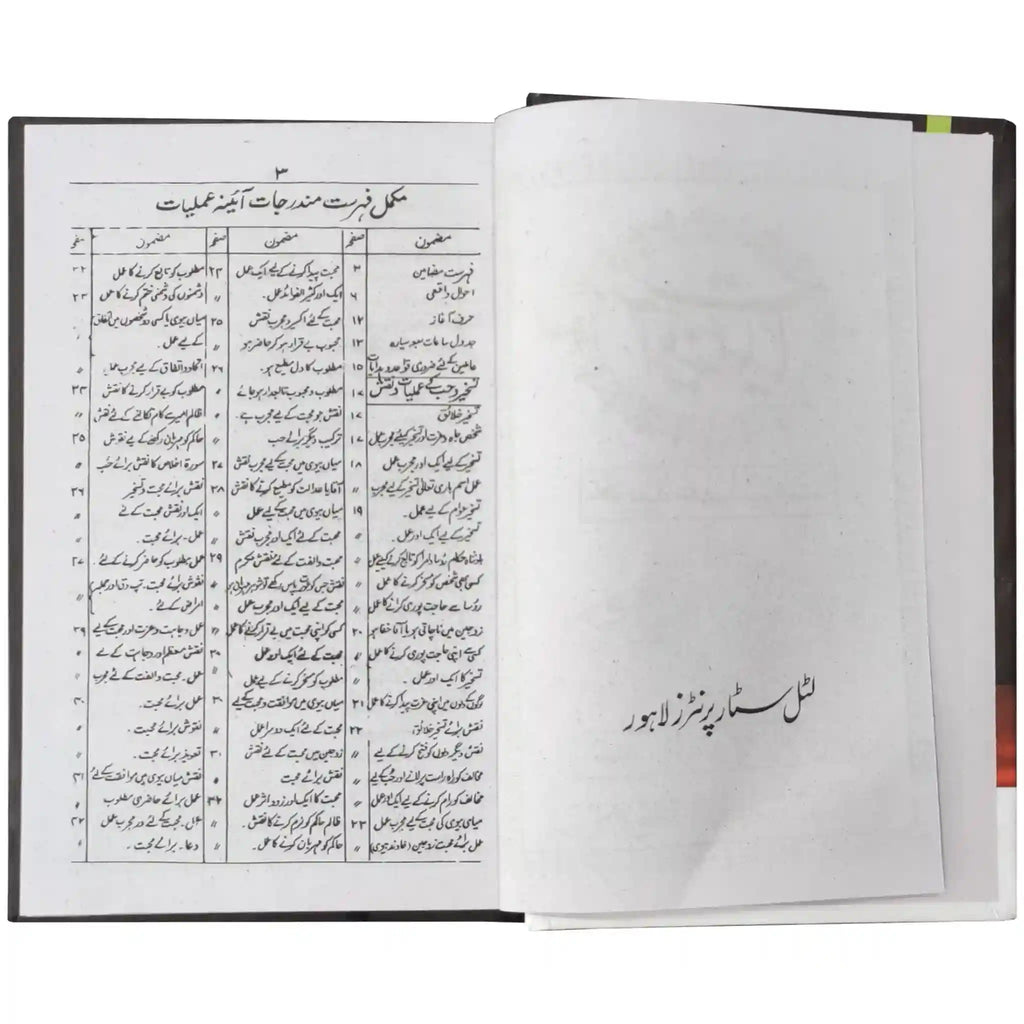 ۳
مکمل فہرست مندرجات آئینہ عملیات
مضمون صفحہ مضمون صفحہ مضمون صفحہ
فہرست مضامین ۳
احوال واقعی ۶
حرف آغاز ۱۲
جدول ساعات سبع سیارہ ۱۳
عاملین کے لئے ضروری قواعد و ہدایات ۱۵
تسخیر و حب کے عملیات و نقش ۱۷
تسخیر خلائق ۱۷
شخص جاہ و عزت اور تسخیر کیلئے مجرب عمل ۱۷
تسخیر کے لیے ایک اور مجرب عمل ۱۸
عمل اسم باری تعالیٰ تسخیر کے لیے مجرب 〃
تسخیر عوام کے لیے عمل ۔ ۱۹
تسخیر کے لیے ایک اور عمل ۔
بادشاہ حکام رؤسا و امراکو تابع کرنے کیلئے عمل 〃
کسی بھی شخص کو مسخر کرنے کا عمل 〃
رؤسا سے حاجت پوری کرانے کا عمل 〃
زوجین میں ناچاقی ہو یا آقا خفا ہو ۲۰
کسی سے اپنی حاجت پوری کرنے کا عمل 〃
تسخیر کا ایک اور عمل ۔ 〃
لوگوں کے دلوں میں اپنی عزت پیدا کرنے کا عمل ۲۱
نقش برائے تسخیر خلائق ۲۲
نقش دیگر دلوں کو فتح کرنے کے لیے 〃
مخالف کو راہ راست پر لانے اور حُب کیلئے 〃
مخالف کو رام کرنے کے لیے ایک اور عمل 〃
میاں بیوی کی محبت کے لیے مجرب عمل ۲۳
عمل برائے محبت زوجین (خاوند بیوی) 〃
محبت پیدا کرنے کے لیے ایک عمل ۲۳
ایک اور کثیر الفوائد عمل ۔ 〃
محبت کے لئے اکسیر و مجرب نقش ۲۵
محبوب بے قرار ہو کر حاضر ہو 〃
مطلوب کا دل مطیع ہو ۔ ۲۶
مطلوب و محبوب تابعدار ہو جائے
نقش جو محبت کے لیے مجرب ہے ۔
ترکیب دیگر برائے حب 〃
میاں بیوی میں محبت کے لیے مجرب نقش ۲۷
آقا یا عدالت کو مطیع کرنے کا نقش ۲۸
میاں بیوی میں محبت کے لیے عمل 〃
محبت کے لئے ایک اور مجرب نقش 〃
محبت و الفت کے لئے نقش مکرم ۲۹
محبت کے لیے ایک اور مجرب عمل 〃
کسی کو اپنی محبت میں بے قرار کرنے کا عمل 〃
محبت کے لئے ایک اور عمل ۳۰
مطلوب کو مسخر کرنے کے لیے عمل 〃
میاں بیوی میں موافقت و محبت کے لیے ۳۰
محبت کے لئے ایک دوسرا عمل 〃
زوجین میں محبت کے لئے نقش ۳۱
نقش برائے محبت
محبت کا ایک اور زود اثر عمل ۳۲
ظالم حاکم کو نرم کرنے کا نقش ۔ 〃
حاکم کو مہربان کرنے کا عمل ۔ 〃
مطلوب کو تابع کرنے کا عمل ۳۲
دشمنوں کی دشمنی ختم کرنے کا عمل ۳۳
میاں بیوی یا کسی دو شخصوں میں اتفاق
کے لیے عمل ۔
اتحاد و اتفاق کے لیے مجرب عمل
مطلوب کو بے قرار کرنے کا نقش ۳۳
ظالم امیر سے کام نکالنے کے لئے نقش 〃
حاکم کو مہربان رکھنے کے لیے نقوش ۳۵
سورۃ اخلاص کا نقش برائے حُب
نقش برائے محبت و تسخیر ۳۶
ایک اور نقش محبت کے لئے
عمل ۔ برائے محبت ۔
عمل مطلوب کو حاضر کرنے کے لئے ۔ ۳۷
نقوش برائے محبت ، تپ دق اور جملہ
امراض کے لئے ۔ 〃
عمل وجاہت و عزت اور محبت کے لیے ۳۹
نقش معظم اور وجاہت کے لئے
عمل ۔ محبت و الفت کے لئے مجرب
عمل برائے محبت ۔ ۴۰
نقوش برائے محبت ۔
تعویذ برائے محبت ۔ 〃
نقش میاں بیوی میں موافقت کے لئے ۴۱
عمل برائے حاضری مطلوب
عمل ۔ محبت کے لئے اور مجرب عمل ۴۲
دعا ۔ برائے محبت ۔
لٹل سٹار پرنٹرز لاہور